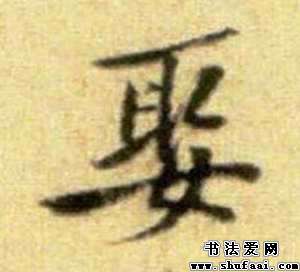 娶
书法爱网
www.shufaai.com